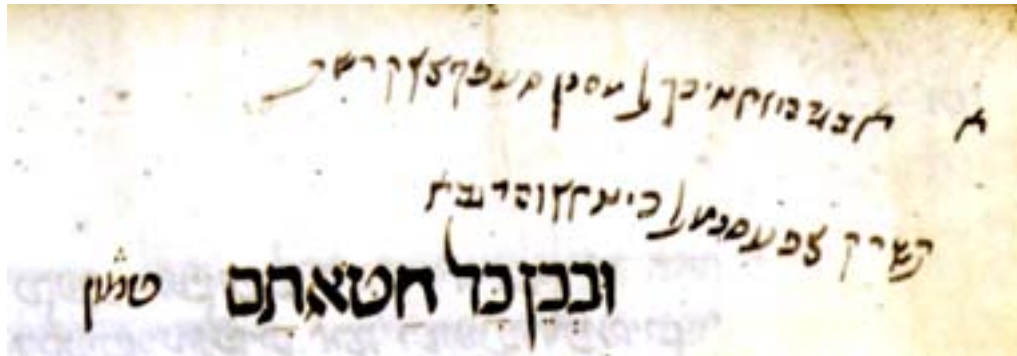 א אבגדהוזחטיכךלמםנןסעפףצץקרשת
תשרק צפעסנמלכיטחזוהדגבא
וּבְכֵן כָּל חטאתָם